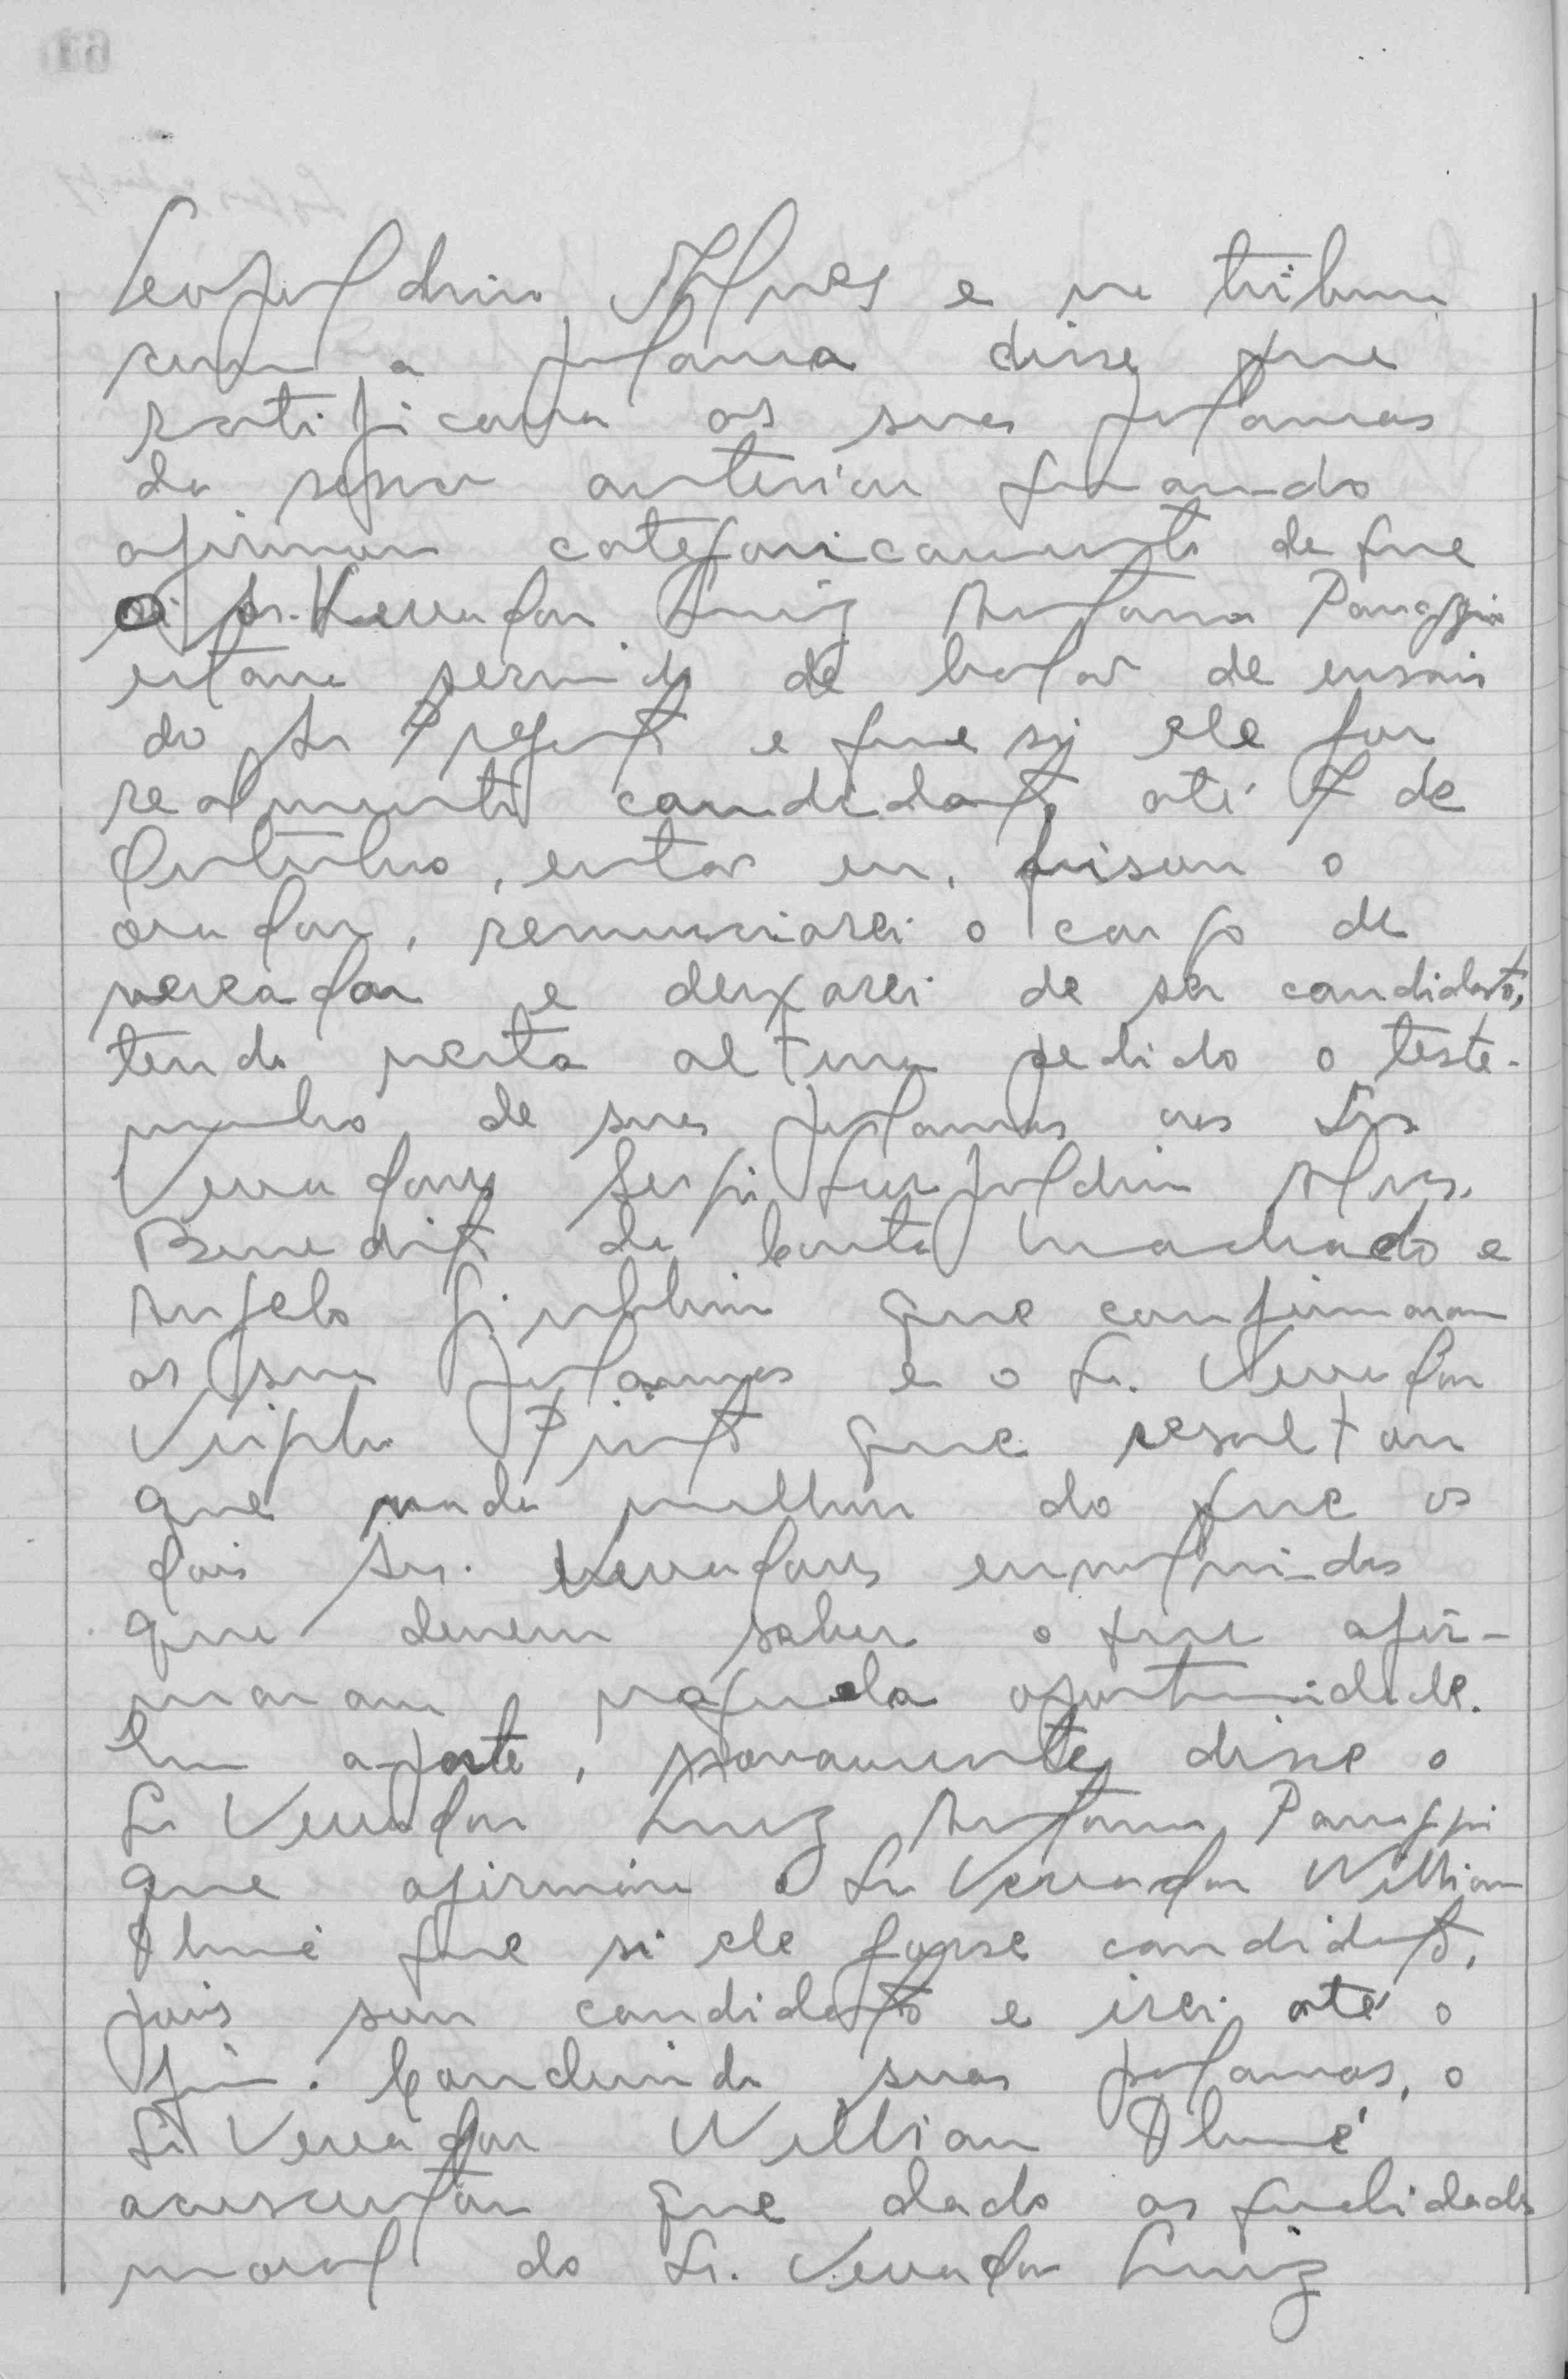 Leopoldino Alves e na tribuna
com a palavra disse que
ratificava as suas palavras
da sessão anterior quando
afirmou categoricamente de que
o Sr. Vereador Luiz Antonio
estava servindo de balão de ensaio
do Sr Prefeito e que si ele for
realmente candidato até 7 de
Outubro, então eu, frisou o
orador, renunciarei o cargo de
vereador e deixarei de ser candidato,
tendo nesta altura pedido o teste-
munho de suas palavras aos Srs
Vereadores Sergio Leopoldino Alves,
Benedito da Costa Machado e
Angelo que confirmaram
as suas palavras e o Sr. Vereador
Virgilio Pinto que resaltou
que nada melhor do que os
dois Srs. Vereadores envolvidos
que devem saber o que afir-
maram naquela oportunidade.
Em aparte, novamente, disse o
Sr Vereador Luiz Antonio
que afirmou o Sr Vereador Willian
Thomé que si ele fosse candidato,
pois sou candidato e irei até o
fim. Concluindo suas palavras, o
Sr Vereador Willian Thomé
acrescentou que dado as qualidades
moral do Sr. Vereador Luiz